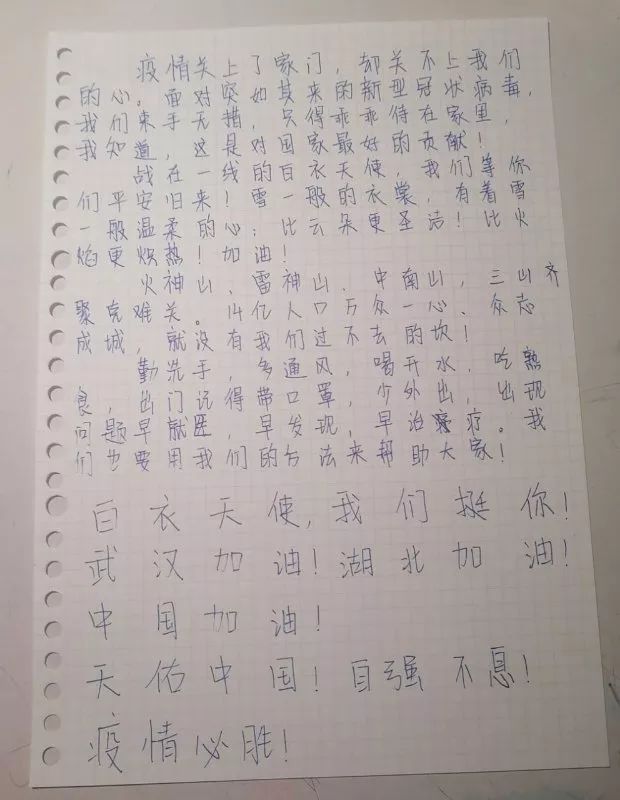 疫情关上了家门，却关不上我们
的心。面对突如其来的新型冠状病毒，
我们束手无措，只得乖乖待在家里，
我知道，这是对国家最好的贡献！
战在一线的白衣天使，我们等你
们平安归来！雪一般的衣裳，有着雪
一般温柔的心；比云朵更圣洁！比火
焰更炽热！加油！
火神山、雷神山、中南山，三山齐
聚克难关。14亿人口万众一心、众志
成城，就没有我们过不去的坎！
勤洗手，多通风，喝开水，吃熟
食，出门记得带口罩，少外出，出现
问题早就医，早发现，早治疗。我
们也要用我们的方法来帮助大家！
白衣天使，我们挺你！
武汉加油！湖北加油！
中国加油！
天佑中国！自强不息！
疫情必胜！